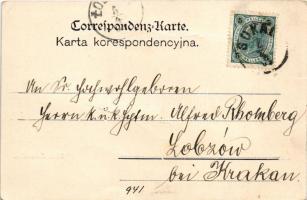 Correspondenz-Karte.
Karta korespondencyjna.
SOKAL
An Sr. Hochwohlgeboren
Herrn k.u.k. Hptm. Alfred Rhomberg
Lobzów
bei Krakau.
941